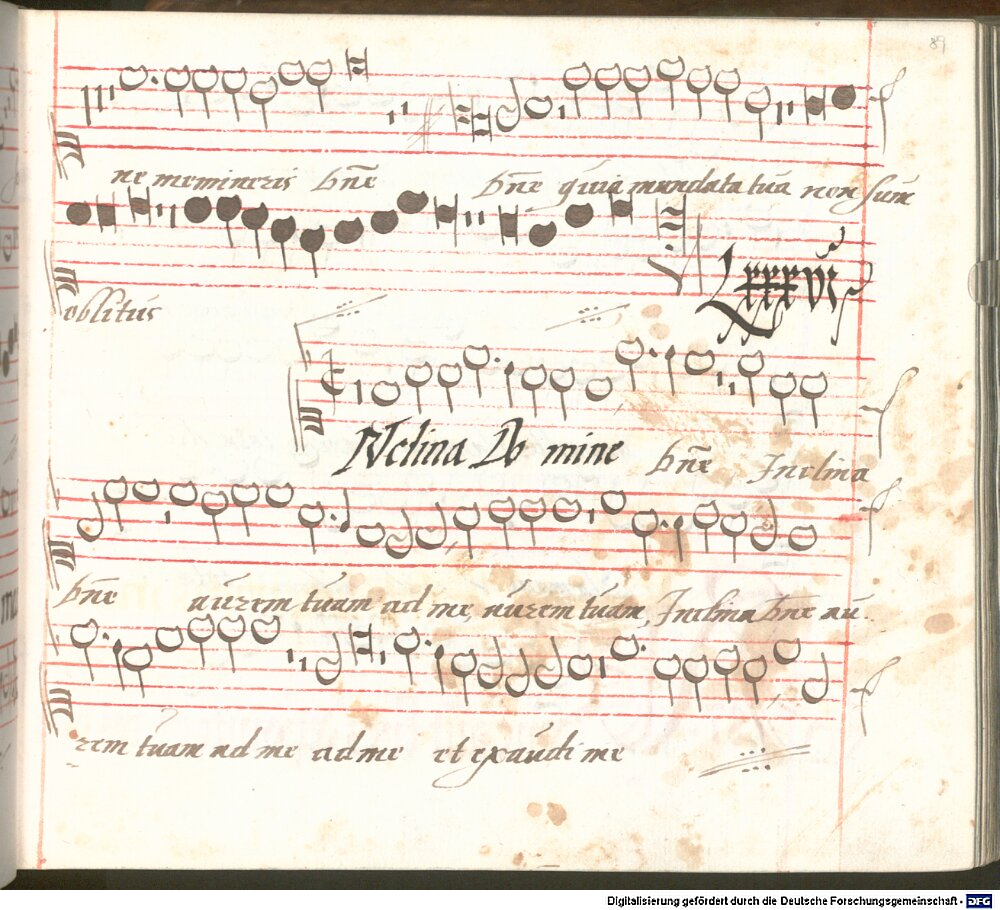 89
ne memineris bñe bñe quia mandata tua non sum
oblitus
LXXXVI
INclina Do mine bñe Inclina
bñe aurem tuam ad me, aurem tuam, Inclina bñe au
rem tuam ad me ad me et exaudi me
Digitalisierung gefördert durch die Deutsche Forschungsgemeinschaft - DFG